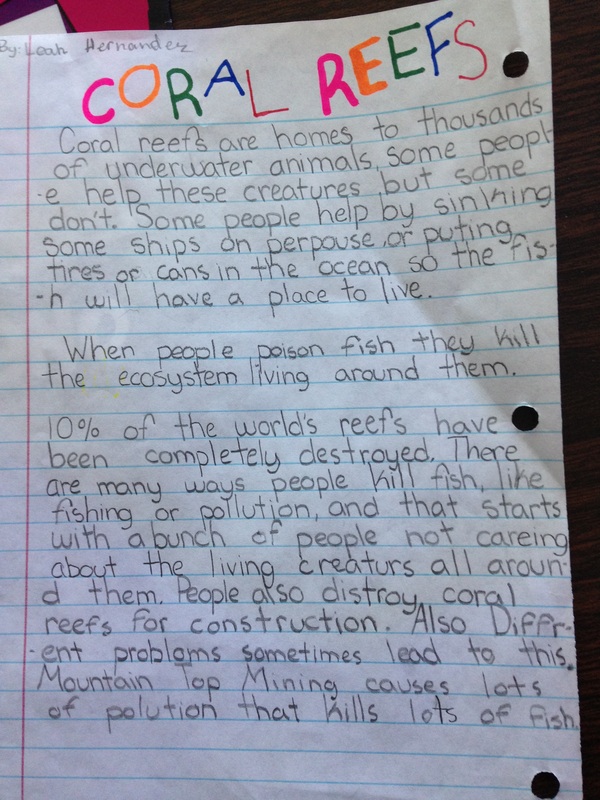 By: Leah Hernandez
CORAL REEFS
Coral reefs are homes to thousands
of underwater animals, some peopl-
-e help these creatures but some
don't. Some people help by sinking
some ships on perpouse, or puting
tires or cans in the ocean so the fis-
-h will have a place to live.
When people poison fish they kill
the ecosystem living around them.
10% of the world's reefs have
been completely destroyed. There
are many ways people kill fish, like
fishing or pollution, and that starts
with a bunch of people not careing
about the living creaturs all aroun-
d them. People also distroy coral
reefs for construction. Also Diffr-
-ent probloms sometimes lead to this.
Mountain Top Mining causes lots
of polution that kills lots of fish.